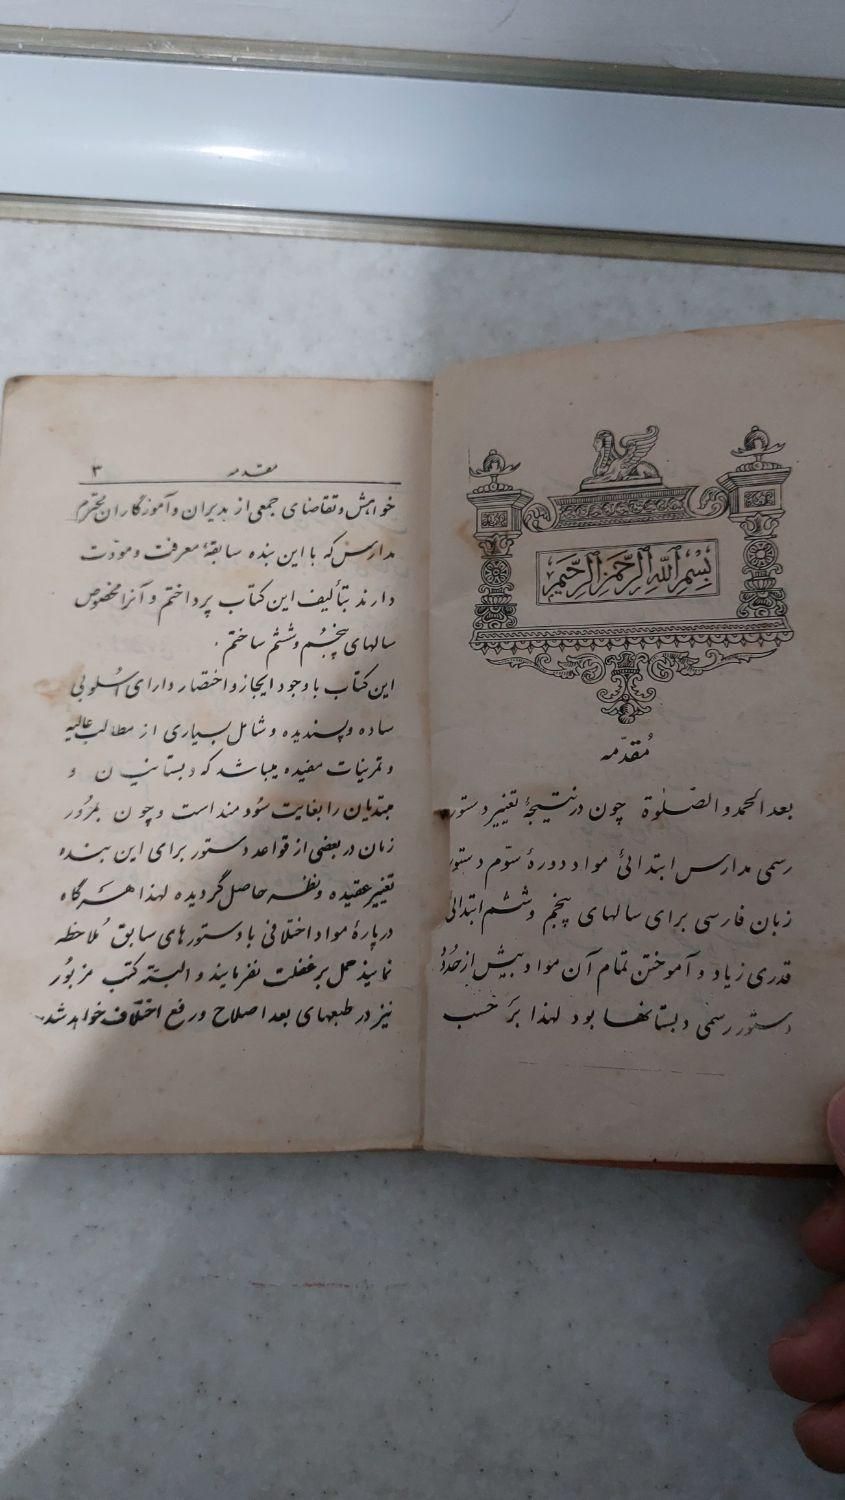 بِسْمِ اللهِ الرَّحْمٰنِ الرَّحِيْمِ
مُقدّمه
بعد الحمد و الصّلوة چون در نتیجهٔ تغییر دستور
رسمی مدارس ابتدائی مواد دورهٔ سوّم دستور
زبان فارسی برای سالهای پنجم و ششم ابتدائی
قدری زیاد و آموختن تمام آن مواد بیش از حُدُود
دستور رسمی دبستانها بود لهذا بر حسب
مقدمه ۳
خواهش و تقاضای جمعی از مدیران و آموزگاران محترم
مدارس که با این بنده سابقهٔ معرفت و مودّت
دارند بتألیف این کتاب پرداختم و آنرا مخصوص
سالهای پنجُم و ششم ساختم .
این کتاب با وجود ایجاز و اختصار دارای اُسلوبی
ساده و پسندیده و شامل بسیاری از مطالب عالیه
و تمرینات مفیده میباشد که دبستانیان و
مبتدیان را بغایت سودمند است و چون بمرُور
زمان در بعضی از قواعد دستور برای این بنده
تغییر عقیده و نظر حاصل گردیده لهذا هرگاه
دربارهٔ مواد اختلافی با دستورهای سابق مُلاحظه
نمایند حمل بر غفلت نفرمایند و البته کتب مزبُور
نیز در طبعهای بعد اصلاح و رفع اختلاف خواهد شد